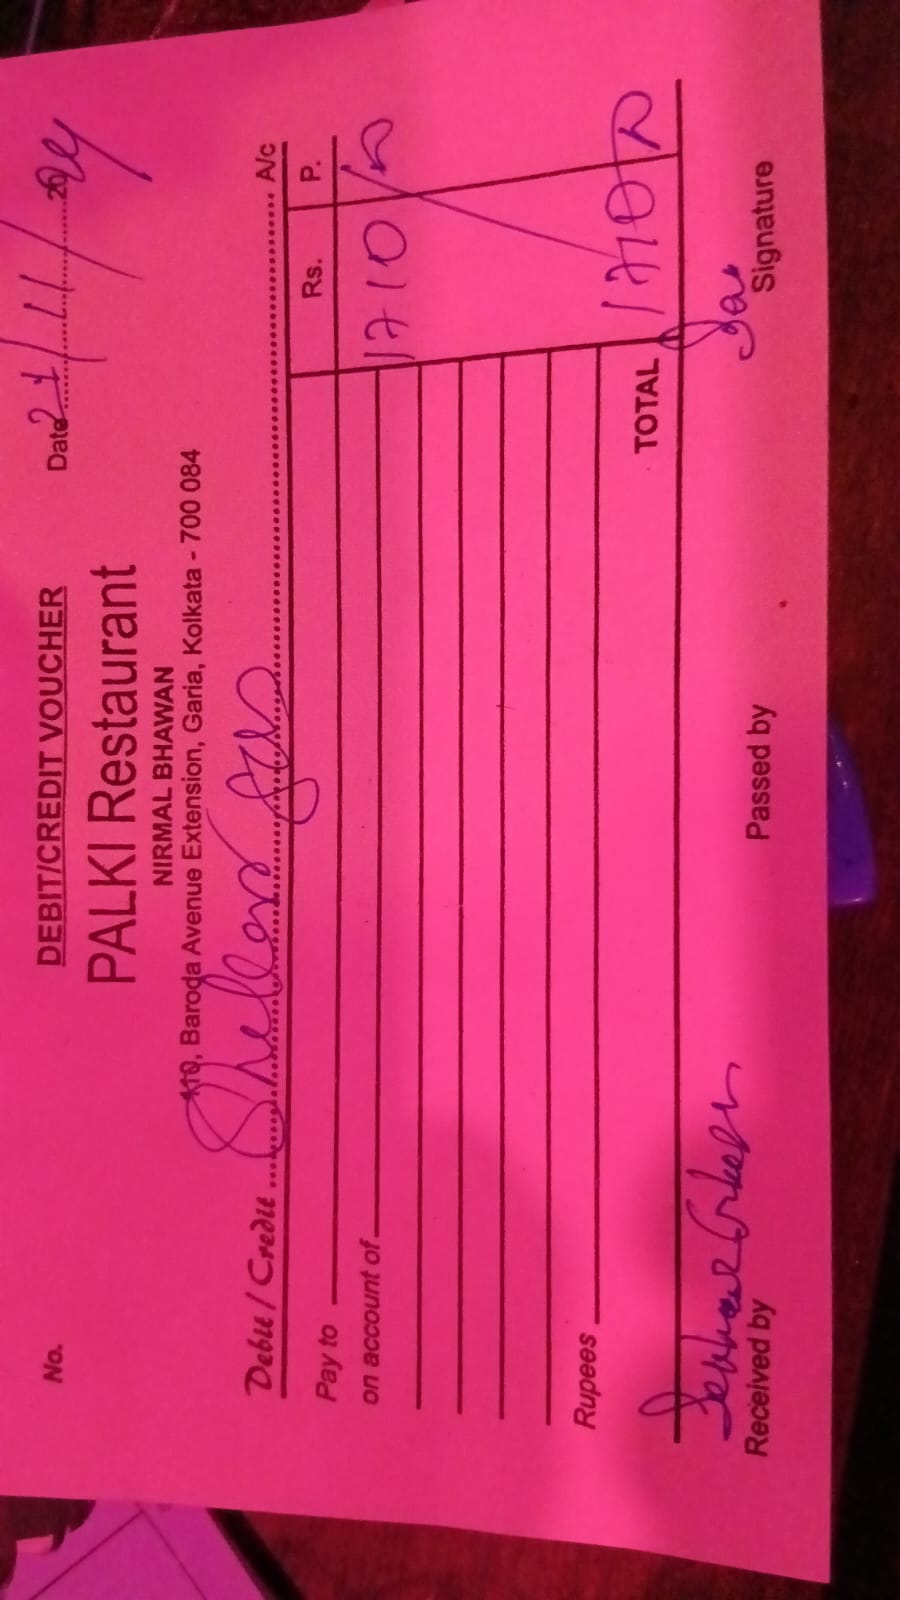 DEBIT/CREDIT VOUCHER
No. Date 21/11/2024
PALKI Restaurant
NIRMAL BHAWAN
K10, Baroda Avenue Extension, Garia, Kolkata - 700 084
Debit / Credit A/c
Rs. P.
Pay to
on account of 1710/
Rupees
TOTAL 1710
Received by Passed by Signature